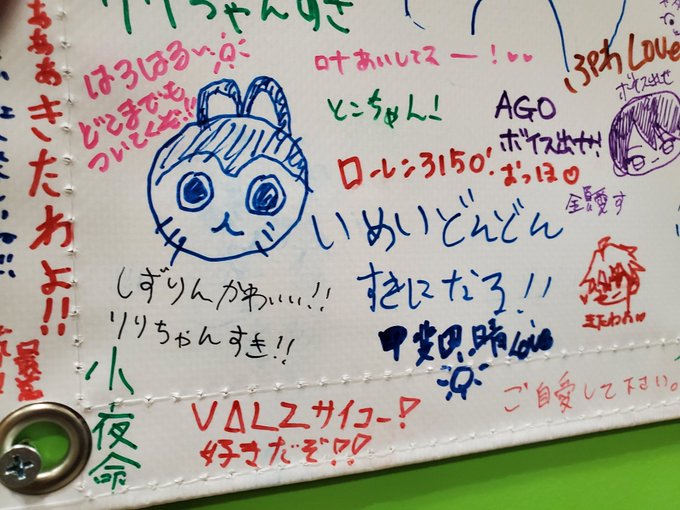 リリちゃんすき
はろはろぃ
どこまでも
ついてくぞ!!
叶あいしてるー!♡♡
とこちゃん!
ふわLove
AGO
ボイス出せ!
ボイス出せ
ローレン3150!
おっほ♡
全員愛す
いめいどんどん
すきになる!!
ああぁきたわよ!!
しずりんかわいい!!
リリちゃんすき!!
甲斐田晴Love
きたわぁ♡
小夜命
VΔLZサイコー!
好きだぞ!!
ご自愛して下さい。